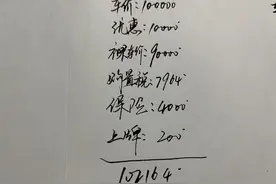 车价:100000
优惠:10000
裸车价:90000
购置税:7964
保险:4000
上牌:200
102164